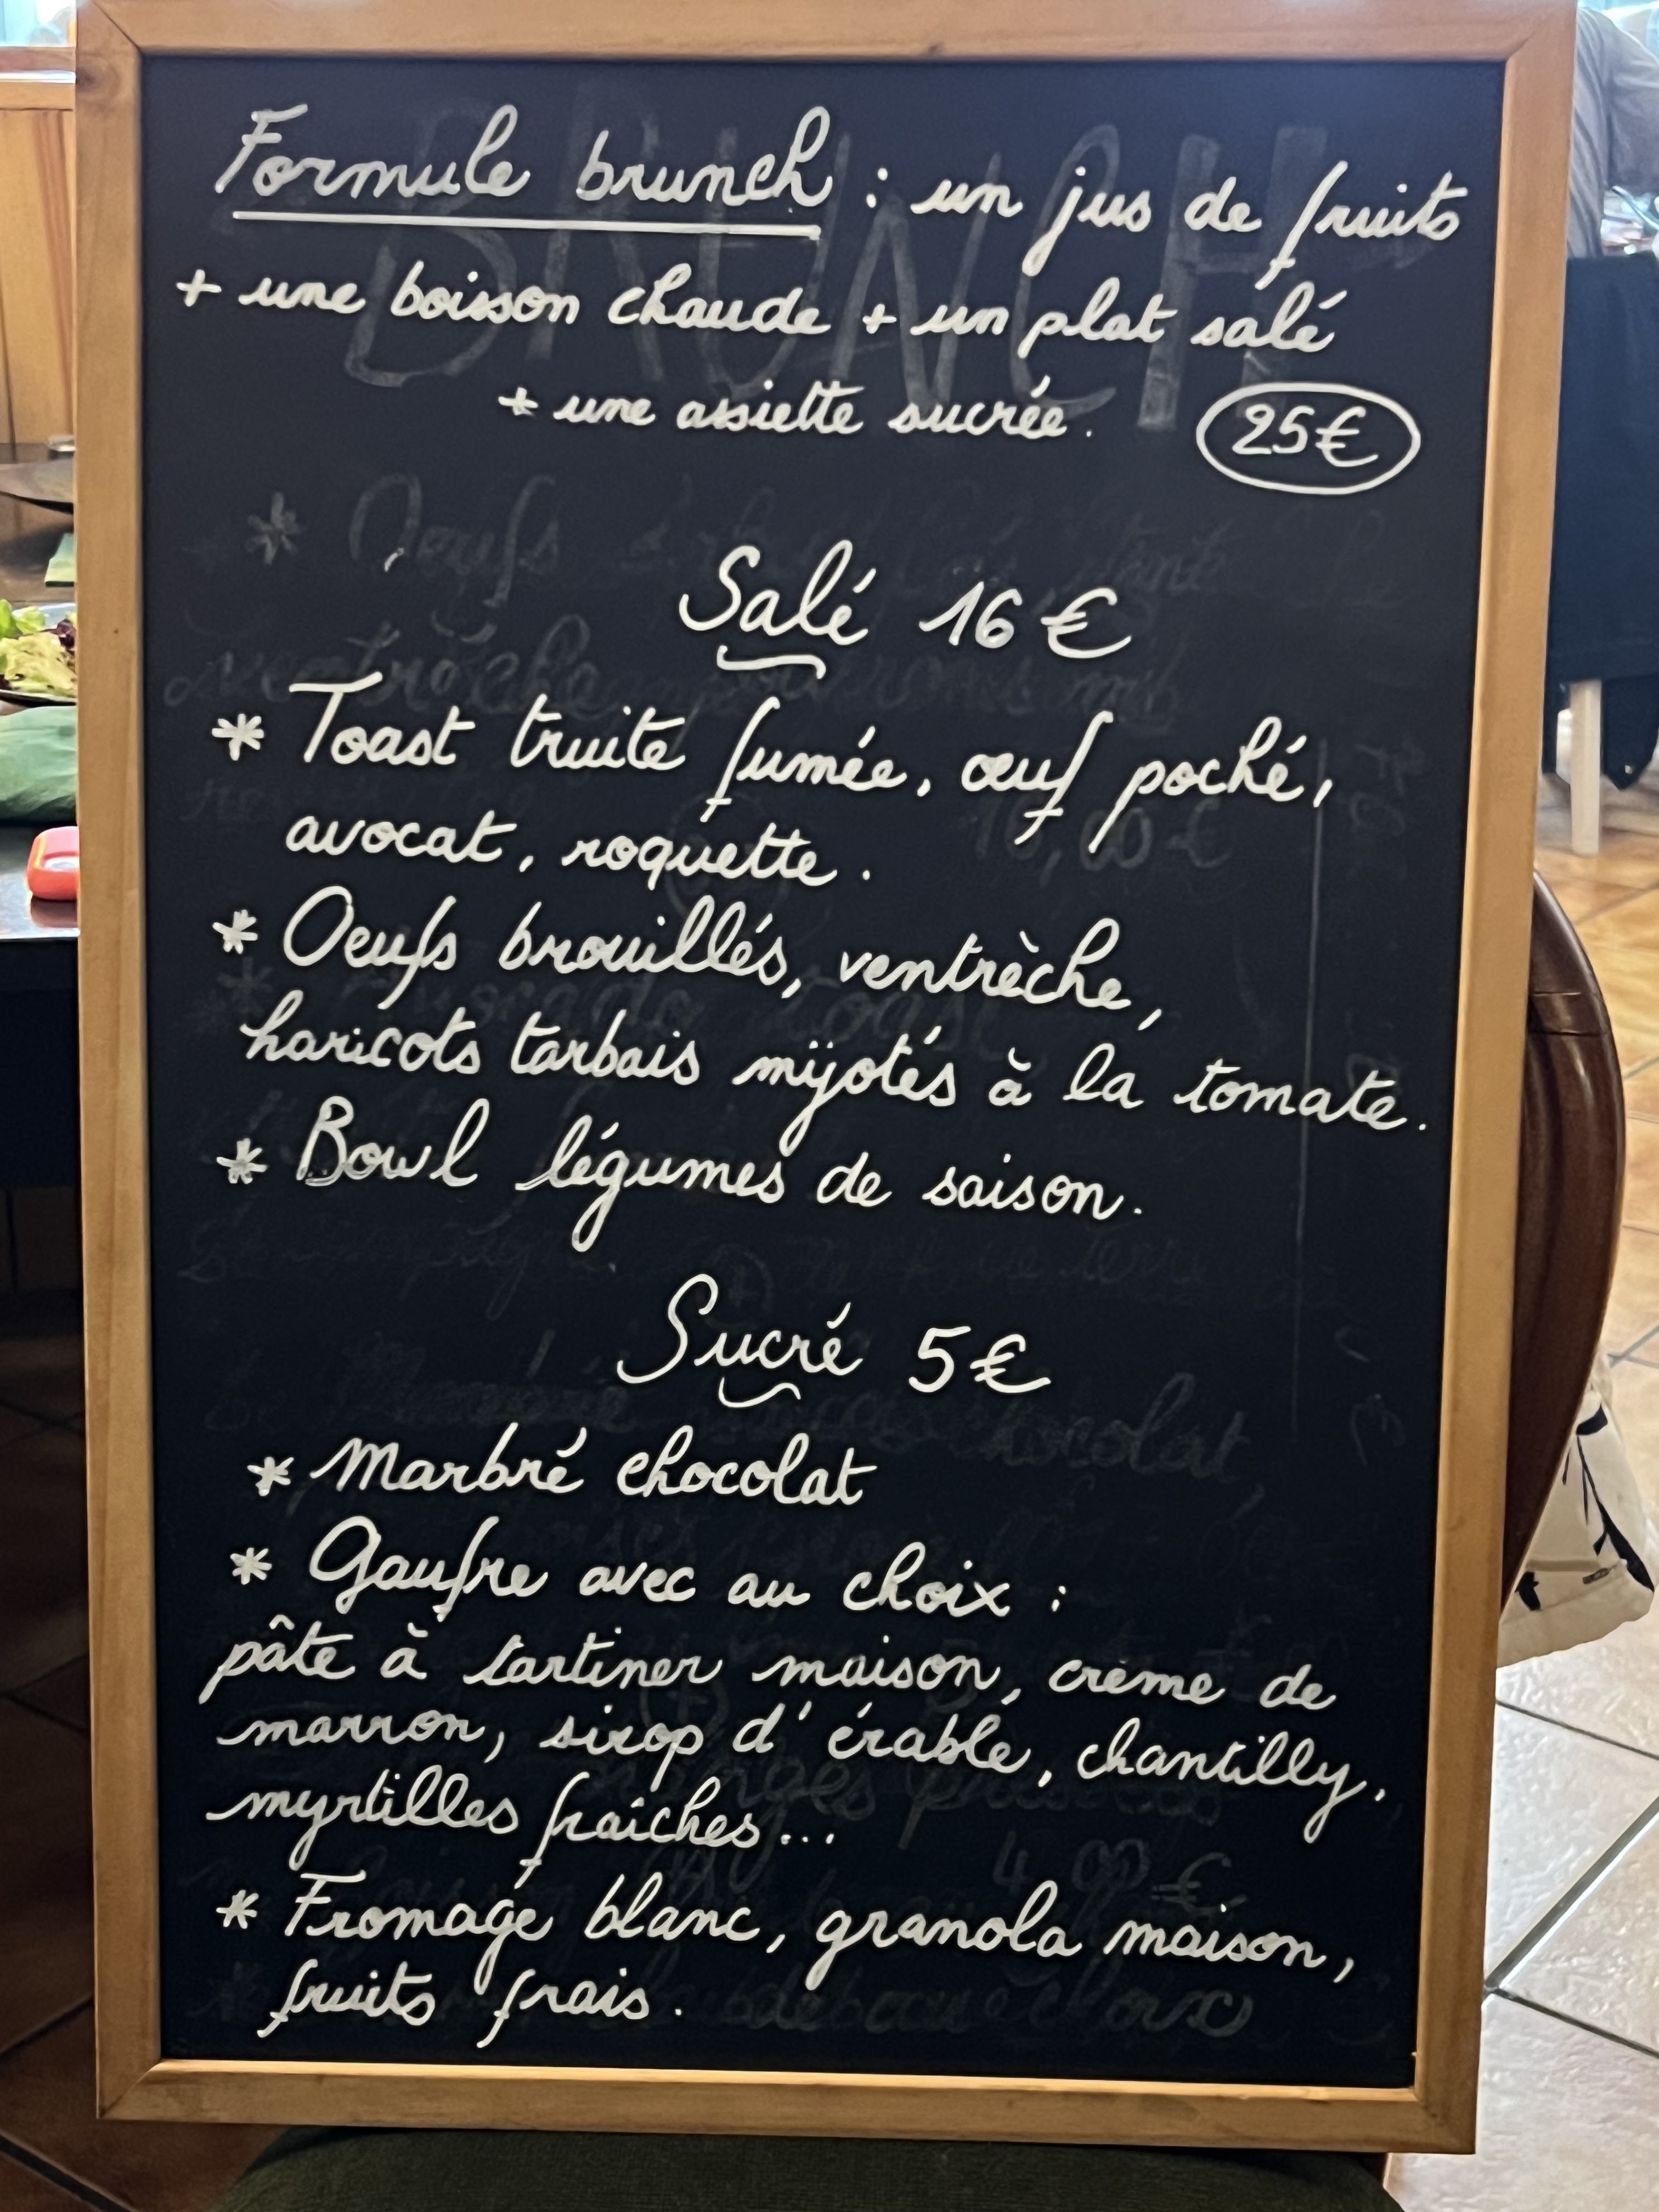 Formule brunch : un jus de fruits
+ une boisson chaude + un plat salé
+ une assiette sucrée. 25€
Salé 16€
* Toast truite fumée, œuf poché,
avocat, roquette.
* Oeufs brouillés, ventrèche,
haricots tarbais mijotés à la tomate.
* Bowl légumes de saison.
Sucré 5€
* Marbré chocolat
* Gaufre avec au choix :
pâte à tartiner maison, crème de
marron, sirop d'érable, chantilly,
myrtilles fraîches...
* Fromage blanc, granola maison,
fruits frais.